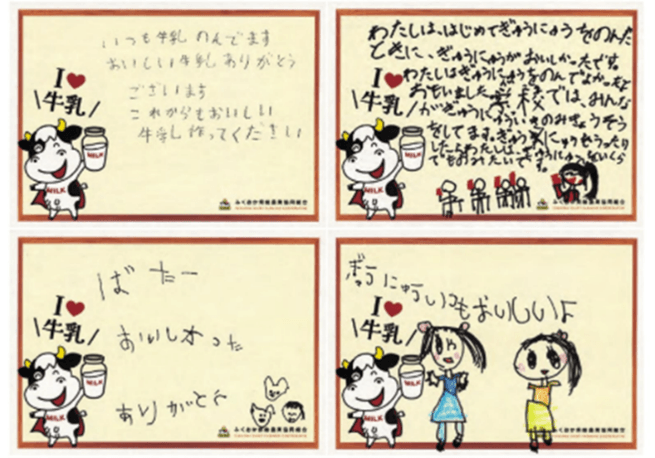 いつも牛乳のんでます
おいしい牛乳ありがとう
ございます
これからもおいしい
牛乳作ってください
I
牛乳
MILK
MILK
ふくおか県酪農業協同組合
わたしは、はじめてぎゅうにゅうをのんだ
ときに、ぎゅうにゅうがおいしかったです。
わたしはぎゅうにゅうをのんでよかったと
おもいました。学校では、みんな
がぎゅうにゅういっきのみきょうそう
をしてます。
I
牛乳
MILK
MILK
ふくおか県酪農業協同組合
ばたー
おいしかった
ありがとう
I
牛乳
MILK
MILK
ふくおか県酪農業協同組合
ぎゅうにゅういつもおいしいよ
I
牛乳
MILK
MILK
ふくおか県酪農業協同組合